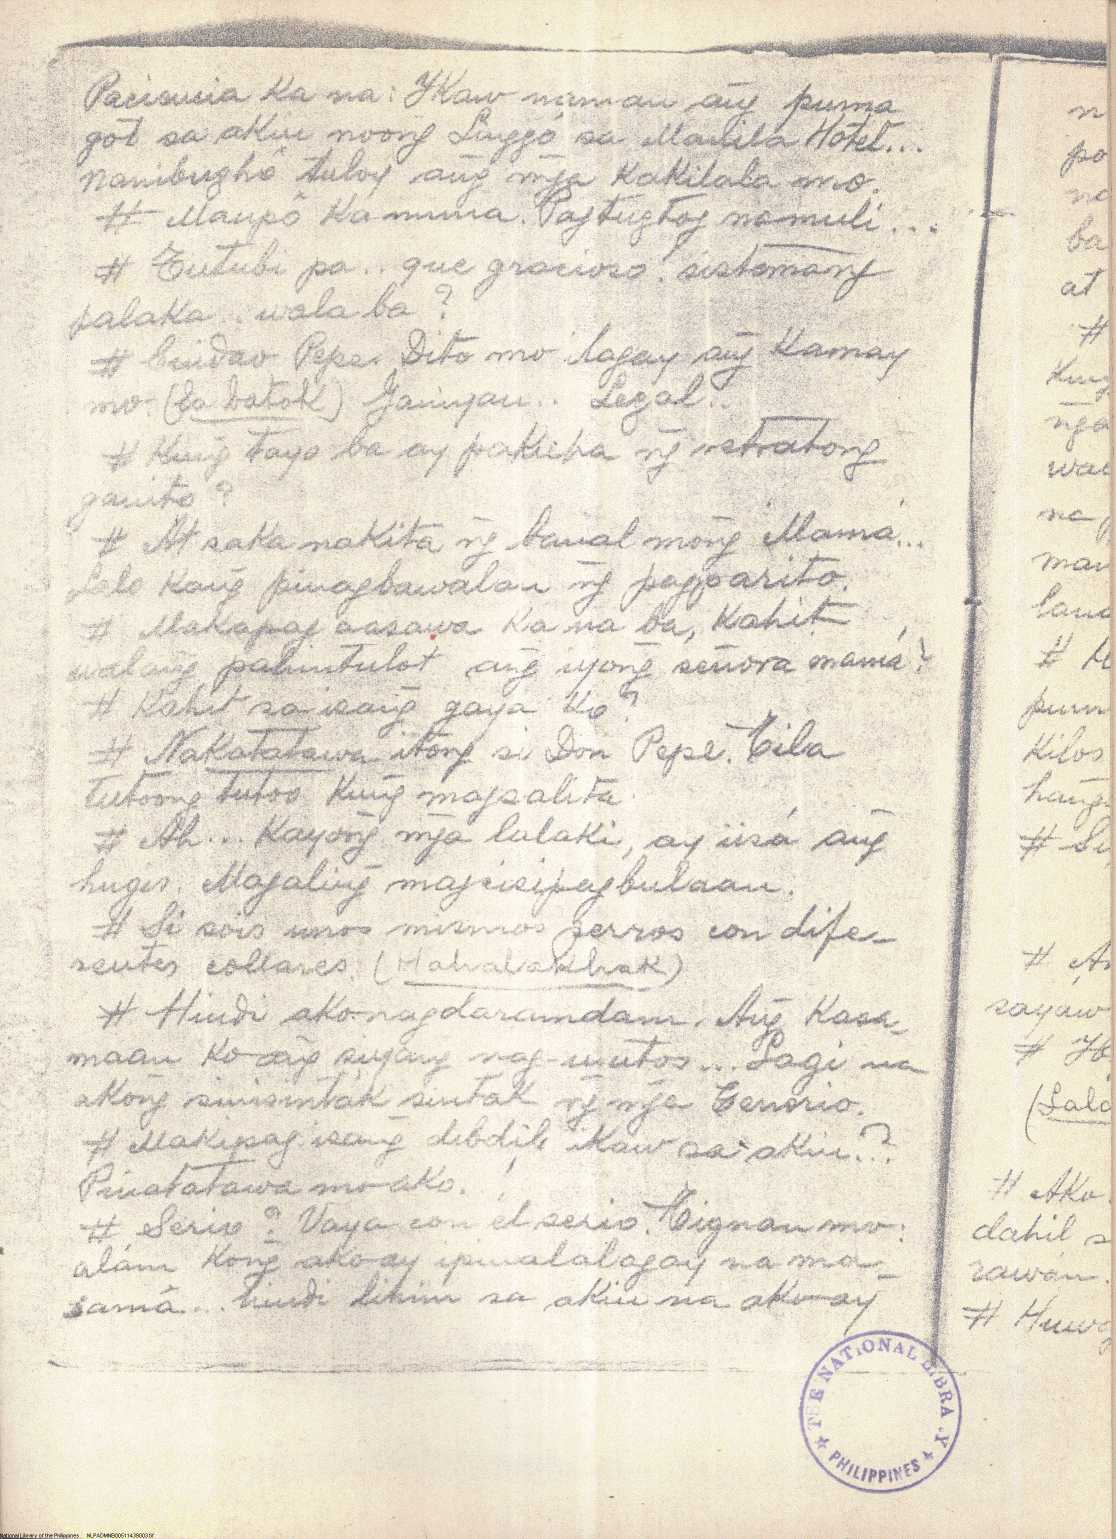 Paciencia Ka na: Ykaw naman ang̃ puma
got sa akin noong̃ Linggó sa Manila Hotel...
Nanibughô tuloy ang̃ mg̃a Kakilala mo.
# Maupô Ka muna. Pagtugtog na muli...
# Tutubi pa.. que gracioso! sistemang
palaka.. wala ba?
# Cuidao Pepe. Dito mo ilagay ang̃ Kamay
mo. (Sa batok) Ganiyan.. Legal..
# Kung̃ tayo ba ay pakuha ng̃ retratong
ganito?
# At saka nakita ng̃ banal mong̃ Mamá...
Lalo Kang̃ pinagbawalan ng̃ pagparito.
# Makapag aasawa Ka na ba, Kahit
walang̃ pahintulot ang̃ iyong̃ señora mamá?
# Kahit sa isang̃ gaya Ko?
# Nakatatawa itong si Don Pepe. Tila
tutoong tutoo Kung̃ magsalita.
# Ah... Kayong̃ mg̃a lalaki, ay iisá ang̃
hugis. Magaling̃ magsisipagbulaan.
# Si sois unos mismos perros con dife-
rentes collares. (Halakhak)
# Hindi ako nagdaramdam. Ang̃ Kasa-
maan Ko ang̃ siyang nag-uutos... Lagi na
akong̃ sinisinták sinták ng̃ mg̃a Tenorio.
# Makipag isang̃ dibdib ikaw sa akin.?
Pinatatawa mo ako.
# Serio? Vaya con el serio. Tignan mo:
alám Kong ako ay ipinalalagay na ma-
samâ... hindi lihim sa akin na ako-ay
n
po
na
ba
at
#
Kung
ng̃a
wa
na
man
lana
#
pum
Kilos
hang̃
# Si
# An
sayaw
#
(Sala
# Ako
dahil s
rawan.
# Huwag
THE NATIONAL LIBRARY
PHILIPPINES
National Library of the Philippines NLPADMNB00511439003bf